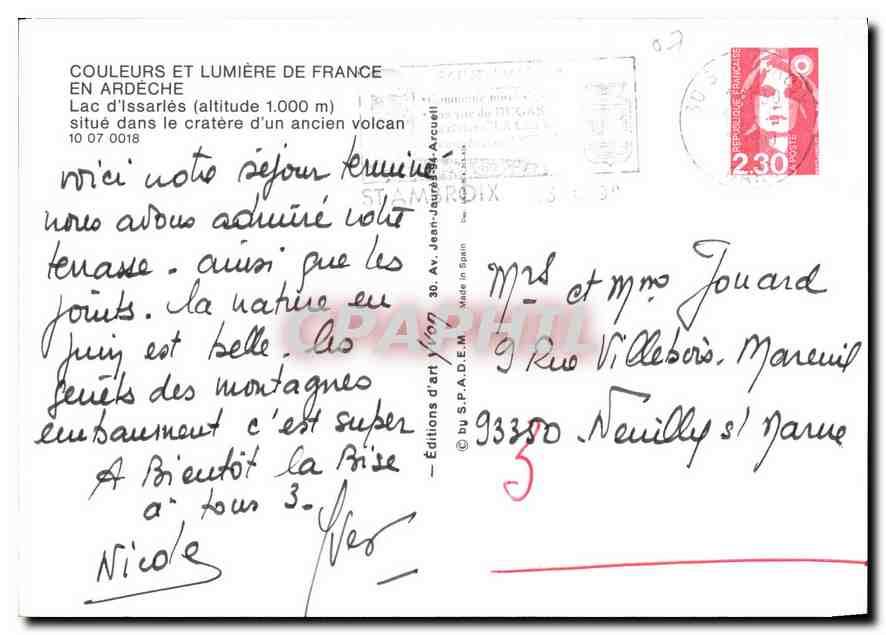 COULEURS ET LUMIÈRE DE FRANCE
EN ARDÈCHE
Lac d'Issarlès (altitude 1.000 m)
situé dans le cratère d'un ancien volcan
10 07 0018
voici notre séjour terminé
nous avons admiré votre
terrasse. ainsi que les
joints. la nature en
juin est belle. les
genêts des montagnes
embaument c'est super
A Bientôt la Bise
à tous 3.
Nicole Yves
— Éditions d'art Yvon 30. Av. Jean-Jaurès-94-Arcueil
© by S.P.A.D.E.M. Made in Spain
ST AMBROIX
07
RÉPUBLIQUE FRANÇAISE
2.30
LA POSTE
Mrs et Mme Jouard
9 Rue Villebois. Mareuil
93350 Neuilly s/ Marne
5
CPAPHIL